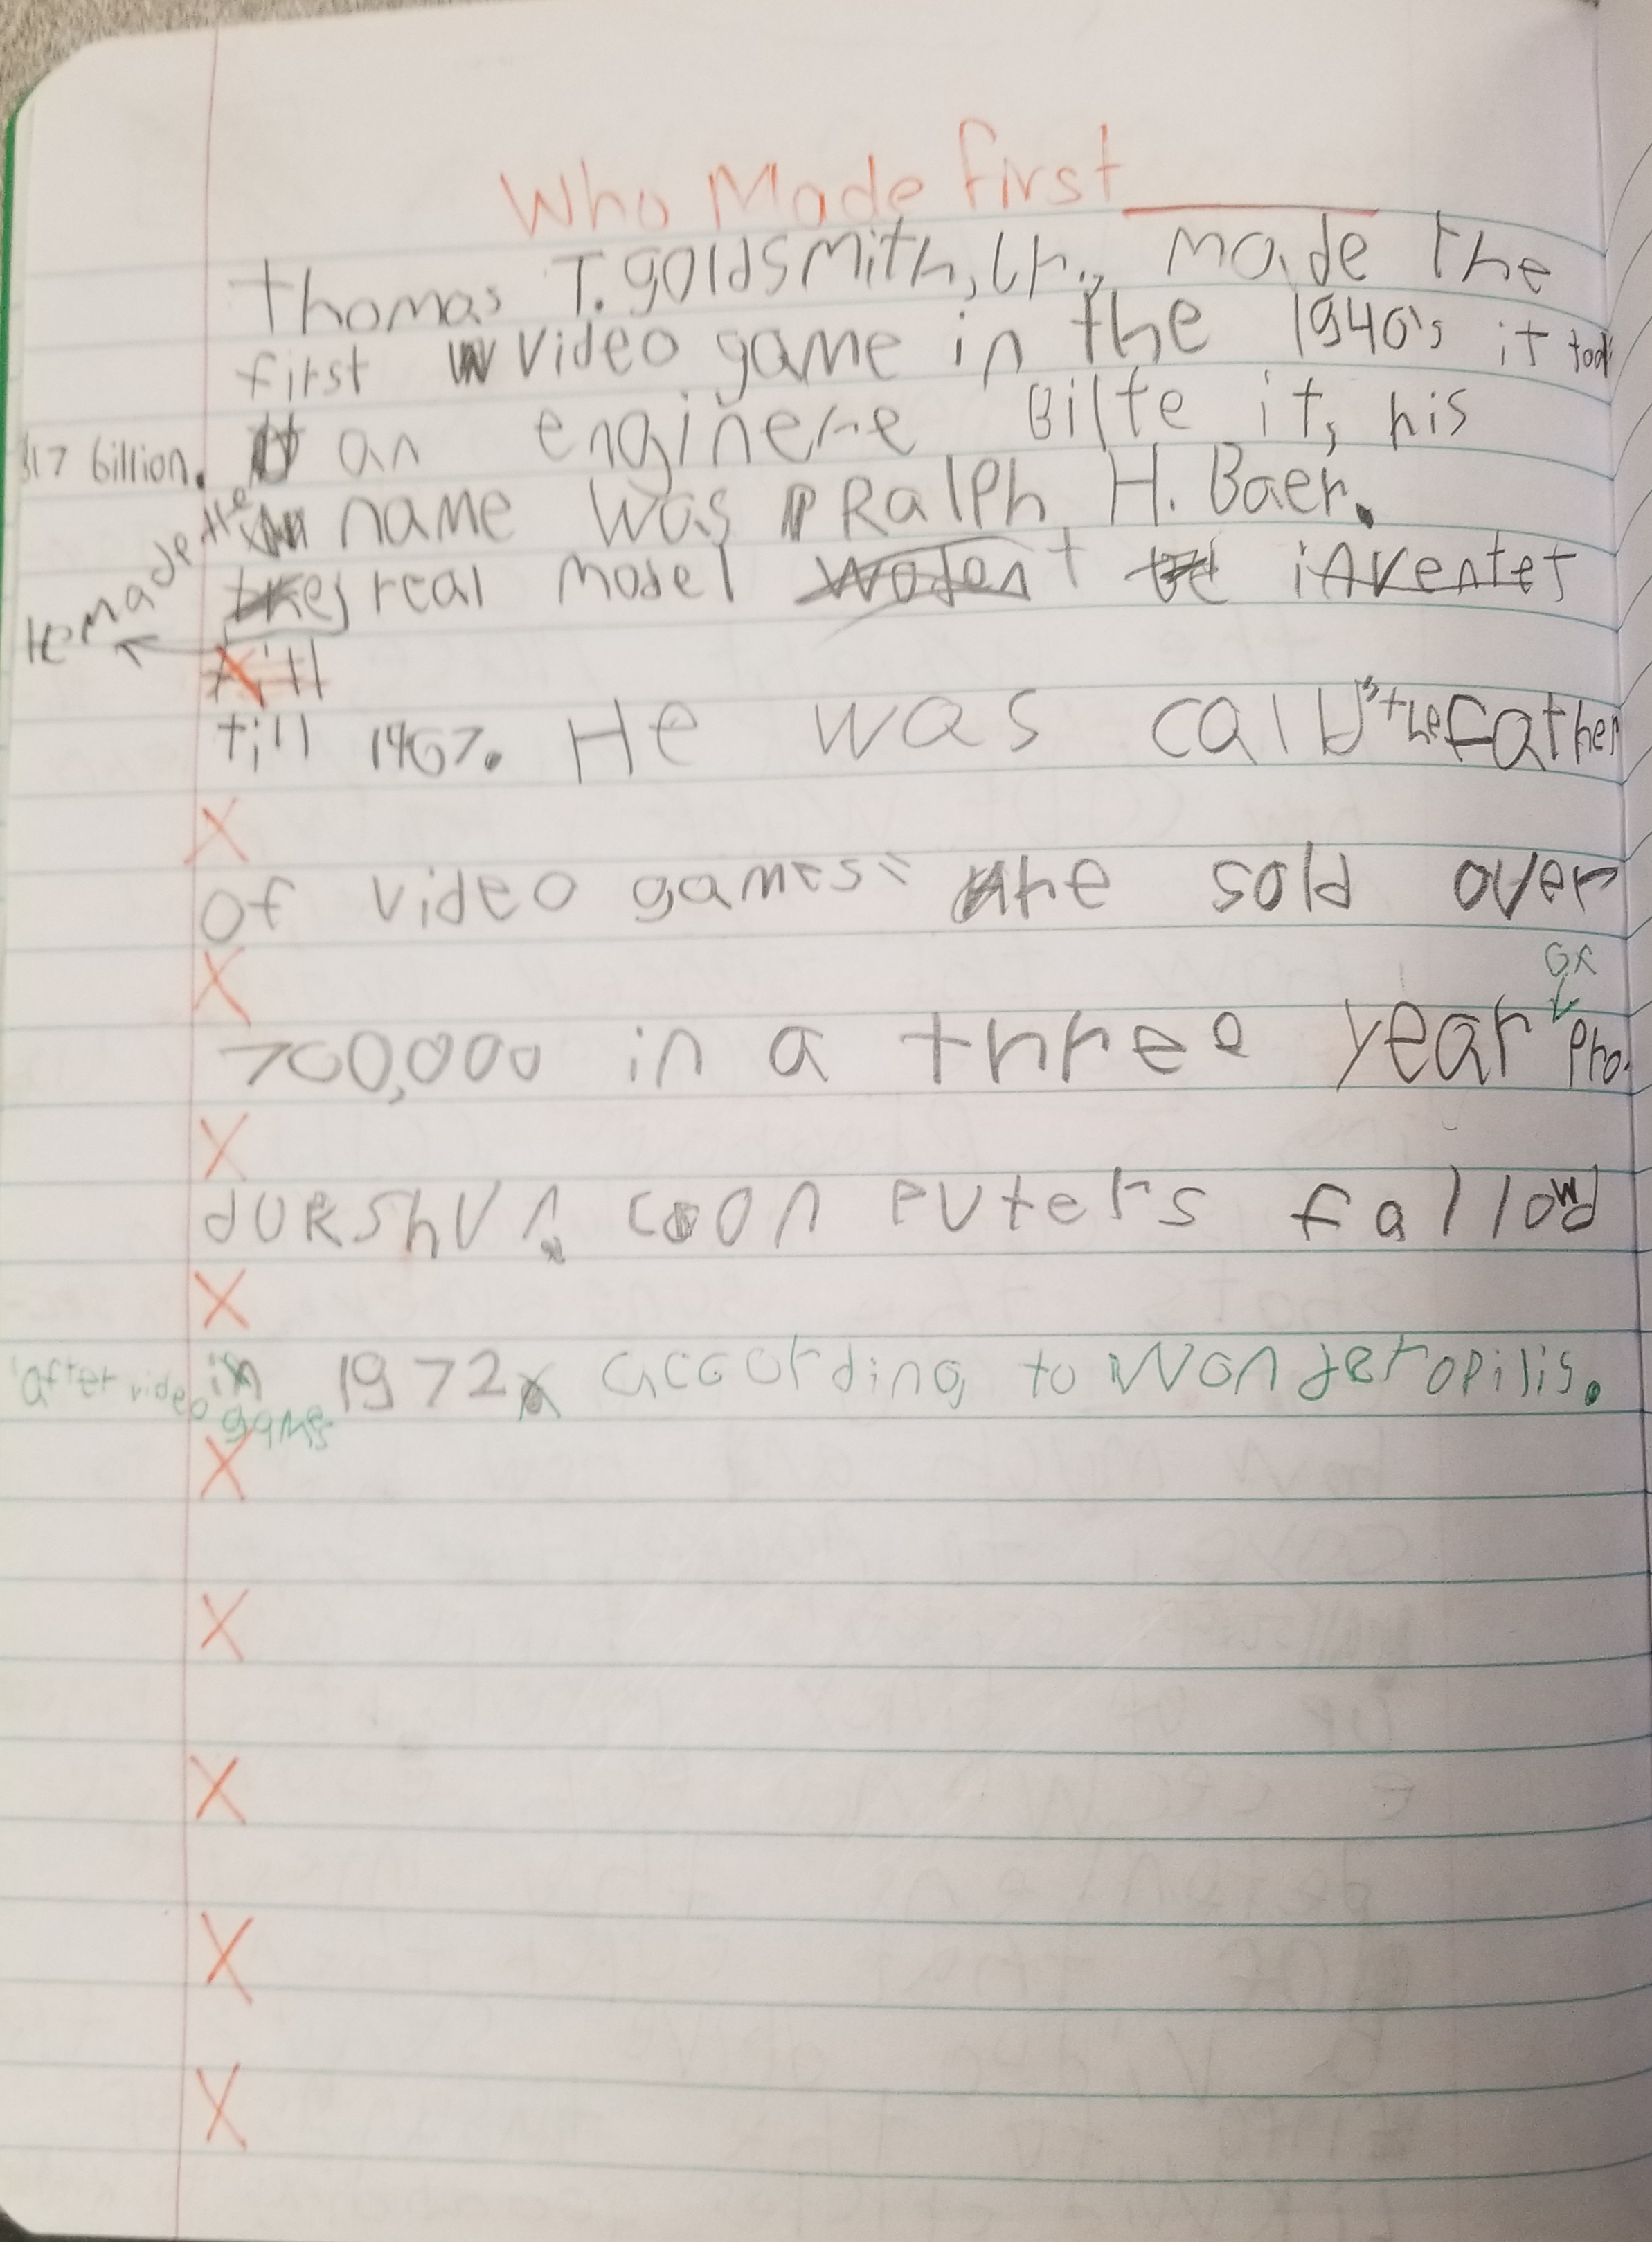 Who Made first
Thomas T. goldsmith, Jr., made the
first video game in the 1940's it took
$17 billion. an enginere Bilte it, his
name was Ralph H. Baer.
He made the real model inventet
till
till 1967. He was calld "the father
of video games" he sold over
or
700,000 in a three year pro.
dukshun. coonputers fallowd
in 1972 according to Wonderopilis.
after video games